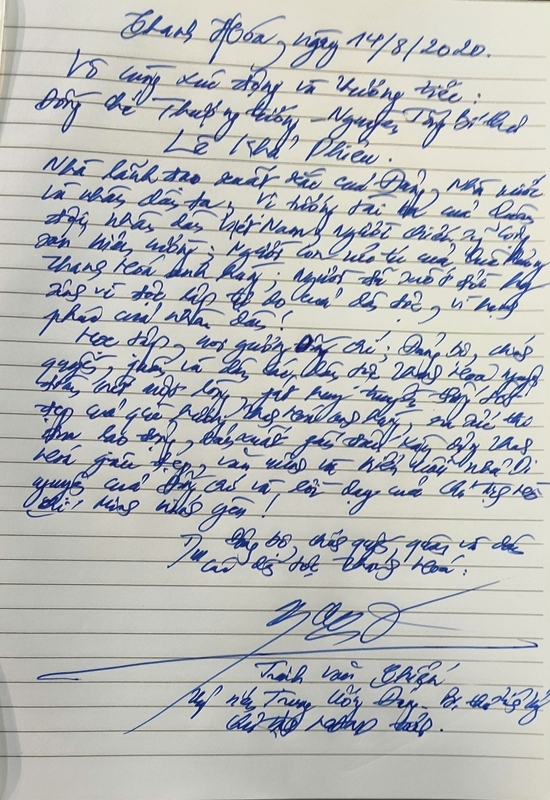 Thanh Hóa, ngày 14/8/2020.
Vô cùng xúc động và thương tiếc:
Đồng chí Thượng tướng - Nguyên Tổng Bí thư
Lê Khả Phiêu.
Nhà lãnh đạo xuất sắc của Đảng, Nhà nước
và nhân dân ta; vị tướng tài ba của Quân
đội nhân dân Việt Nam; người chiến sỹ cộng
sản kiên cường; Người con ưu tú của quê hương
Thanh Hóa anh hùng; Người đã suốt đời hy
sinh vì độc lập tự do của dân tộc, vì hạnh
phúc của nhân dân!
Học tập, noi gương đồng chí; Đảng bộ, chính
quyền, quân và dân các dân tộc Thanh Hóa nguyện
đoàn kết một lòng, phát huy truyền thống tốt
đẹp của quê hương Thanh Hóa anh hùng, ra sức thi
đua lao động, sản xuất, phấn đấu xây dựng Thanh
Hóa giàu đẹp, văn minh và kiểu mẫu như Di
nguyện của đồng chí và lời dạy của Chủ tịch Hồ
Chí Minh kính yêu!
T/M Đảng bộ, chính quyền, quân và dân
các dân tộc Thanh Hóa:
Trịnh Văn Chiến
Ủy viên Trung ương Đảng - Bí thư Tỉnh ủy
Chủ tịch HĐND tỉnh.